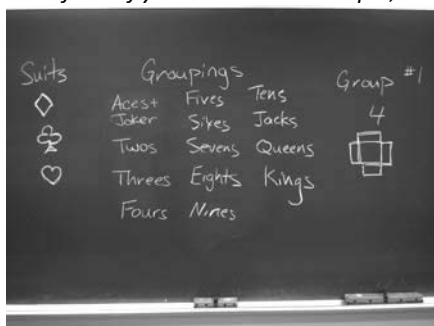 Suits
Groupings
Aces+
Joker
Twos
Threes
Fours
Fives
Sixes
Sevens
Eights
Nines
Tens
Jacks
Queens
Kings
Group #1
4